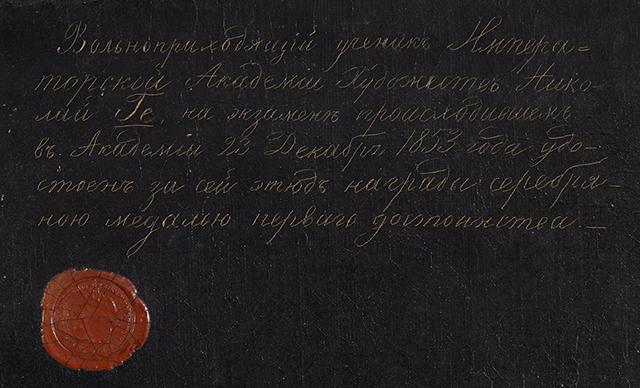 Вольноприходящій ученикъ Импера=
торскій Академіи Художествъ Нико-
лай Ге, на экзаменѣ происходившемъ
въ Академіи 23 Декабрѣ 1853 года удо-
стоенъ за сей этюдъ награды серебря-
ною медалью перваго достоинства.—